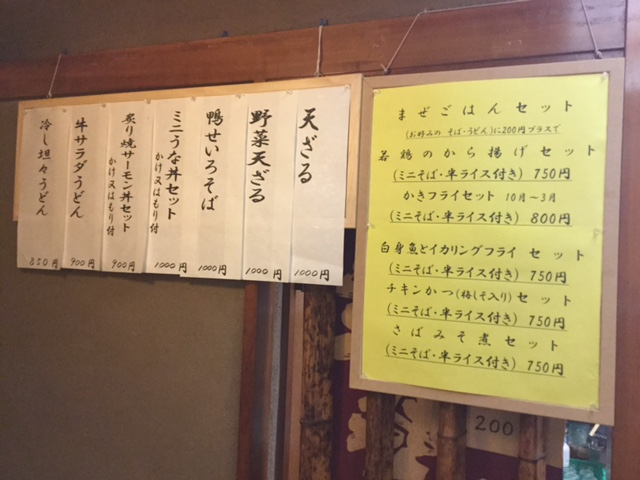 天ざる
1000円
野菜天ざる
1000円
鴨せいろそば
1000円
ミニうな丼セット
かけ又はもり付
1000円
炙り焼サーモン丼セット
かけ又はもり付
900円
牛サラダうどん
900円
冷し坦々うどん
850円
まぜごはんセット
(お好みの そば・うどん)に200円プラスで
若鶏のから揚げセット
(ミニそば・半ライス付き) 750円
かきフライセット 10月～3月
(ミニそば・半ライス付き) 800円
白身魚とイカリングフライ セット
(ミニそば・半ライス付き) 750円
チキンかつ(梅しそ入り)セット
(ミニそば・半ライス付き) 750円
さばみそ煮セット
(ミニそば・半ライス付き) 750円
200